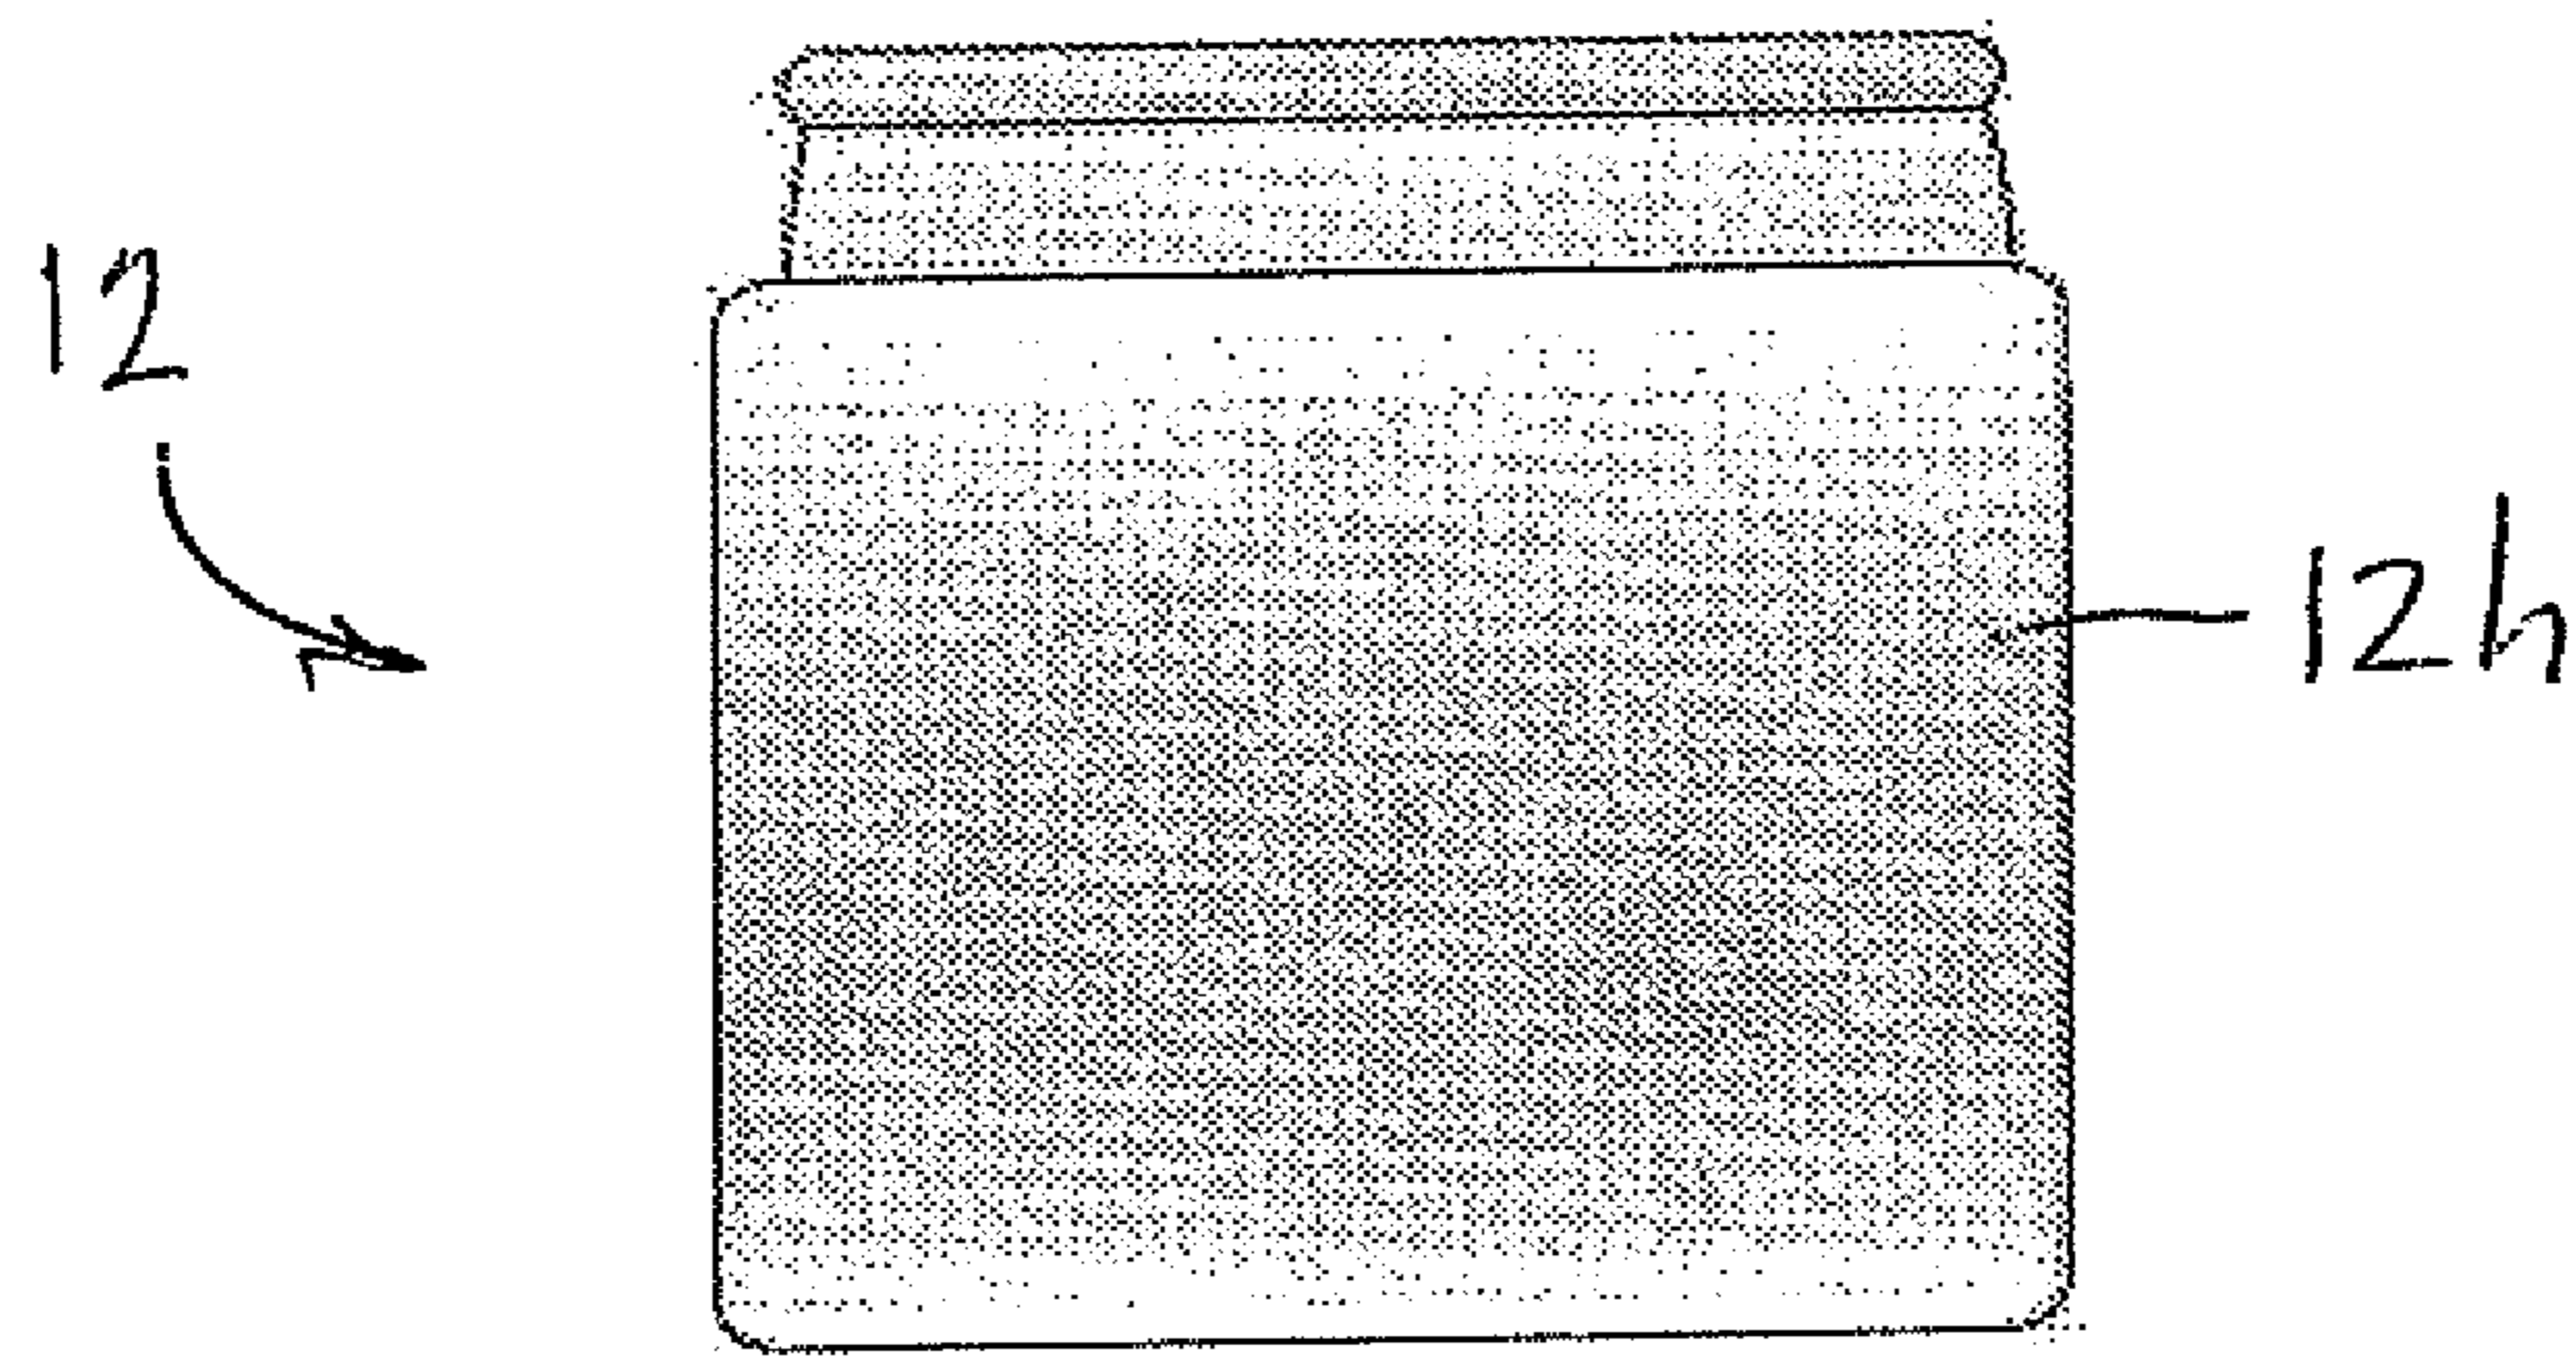 12
12h